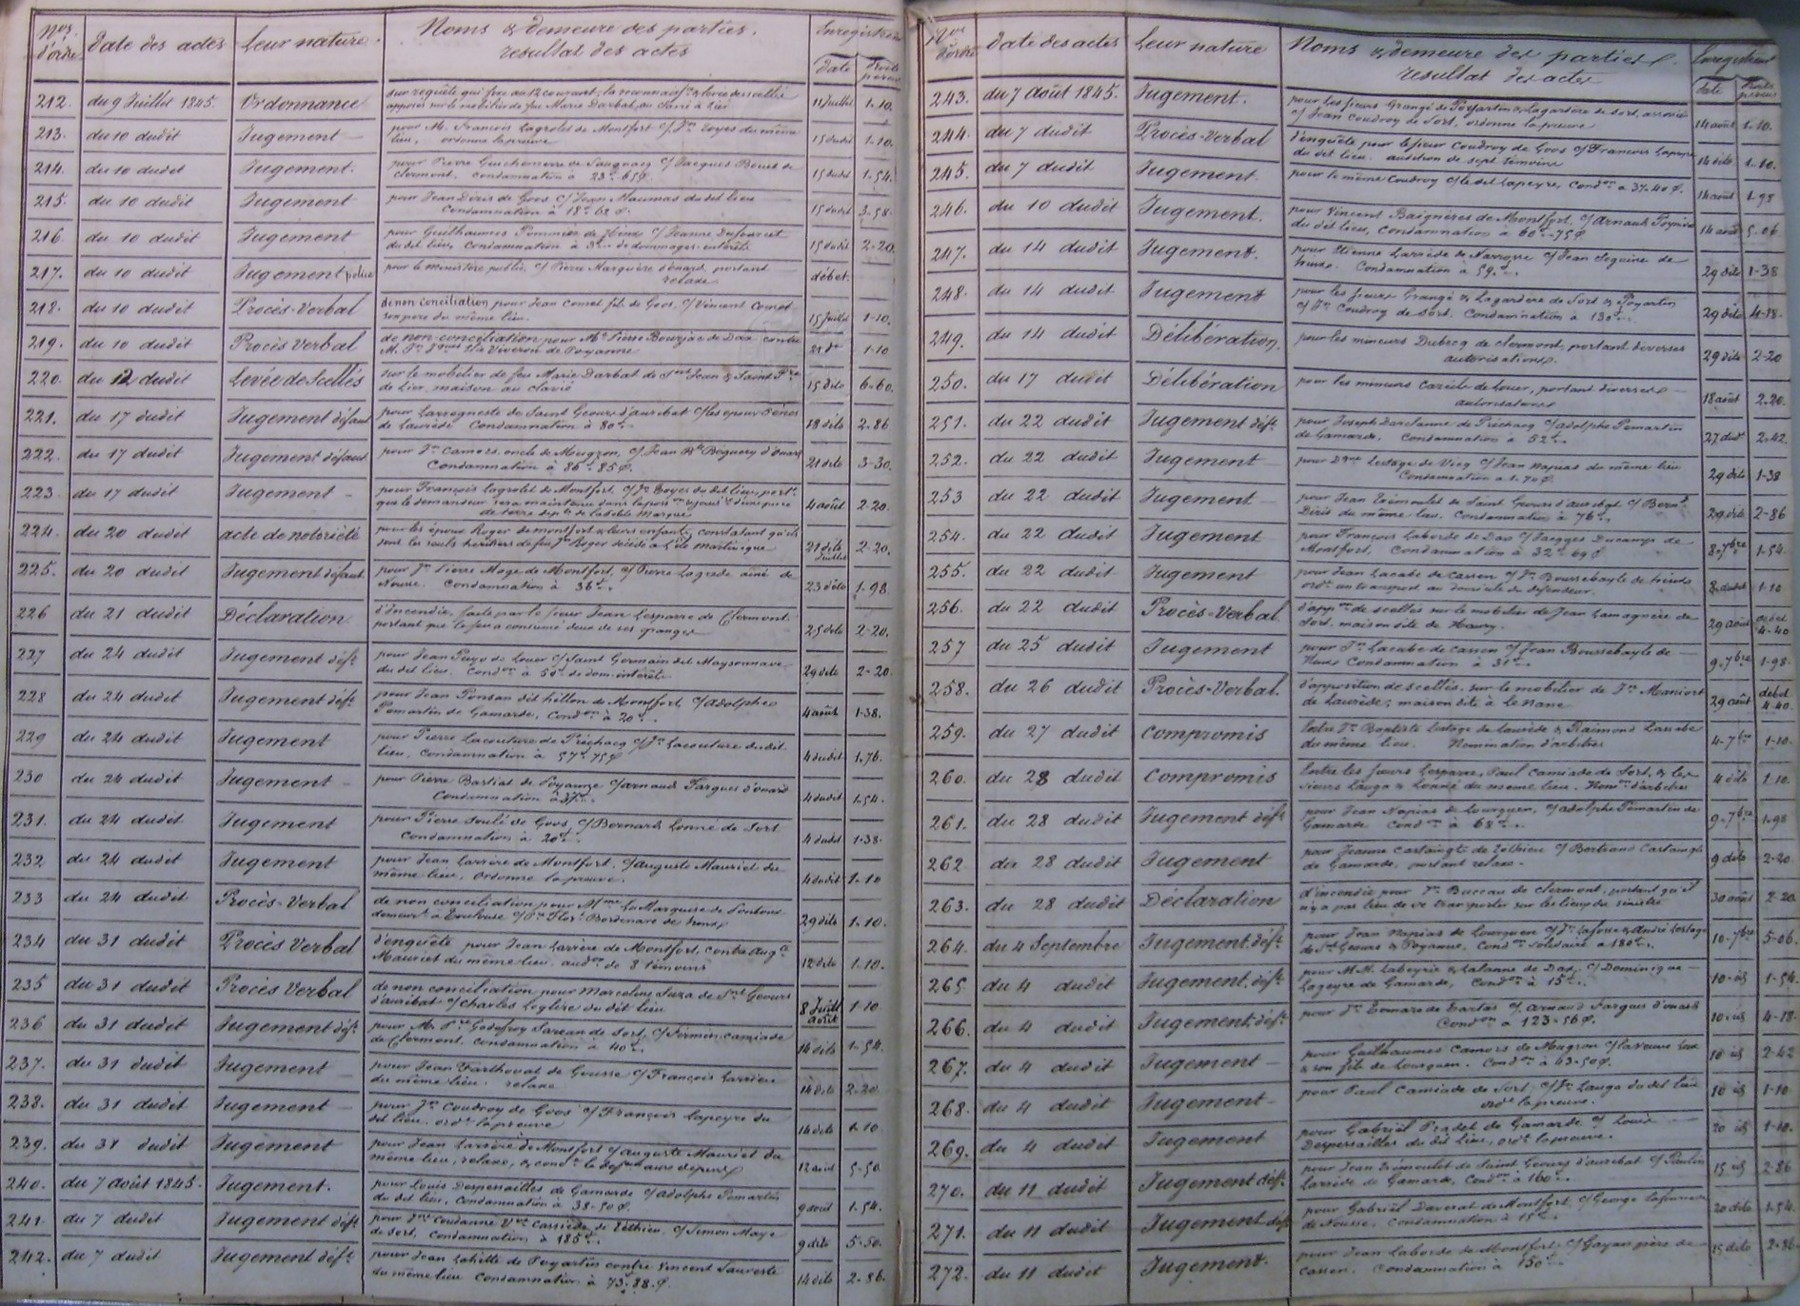 Nos d'ordre Date des actes Leur nature Noms & demeure des parties. Enregistrem
resultat des actes date Droits perçus
212. du 9 Juillet 1845. Ordonnance sur requête qui fixe au 12 courant, la reconnaiss & levée des scellés
apposés sur le mobilier de feu Marie Darbat, au Clavié à Lier 11 Juillet 1-10.
213. du 10 dudit Jugement pour M. François Lagrolet de Montfort c/ Jn Boyes du même
lieu, ordonne la preuve 15 dudit 1-10.
214. du 10 dudit Jugement. pour Pierre Guichemerre de Saugnacq c/ Jacques
Clermont. Condamnation à 23 f. 65 c. 15 dudit 1-54.
215. du 10 dudit Jugement pour Jean Diris de Goos c/ Jean Maumas du dit lieu
Condamnation à 18 f. 62 c. 15 dudit 3-58.
216. du 10 dudit Jugement pour Guilhaumes Pommiés de c/ Jeanne
du dit lieu, Condamnation à 3 f. de dommages-intérêts 15 dudit 2-20.
217. du 10 dudit Jugement police pour le ministère public, c/ Pierre Marquère d'onard, portant
relaxe débet.
218. du 10 dudit Procès-Verbal de non conciliation pour Jean Comet fils de Goos, c/ Vincent Comet
son père du même lieu. 15 Juillet 1-10.
219. du 10 dudit Procès Verbal de non-conciliation pour Me Pierre de Dax contre
M. Viveron de Poyanne 21 do 1-10
220. du 12 dudit Levée de Scellés sur le mobilier de feu Marie Darbat de Jean & Saint
de Lier, maison au clavié 15 dito 6-60.
221. du 17 dudit Jugement défaut pour Larregneste de Saint Geours d'auribat c/ les époux
de Laurède Condamnation à 80 f. 18 dito 2-86
222. du 17 dudit Jugement défaut pour Jn Camors, oncle de Mugron, c/ Jean Bte Beguery d'onard
Condamnation à 86 f. 85 c. 21 dito 3-30.
223. du 17 dudit Jugement pour François Lagrolet de Montfort c/ Jn Boyes du dit lieu, portt
que le demandeur sera maintenu dans la possion d'une pièce
de terre 4 août 2-20.
224. du 20 dudit acte de notoriété pour les époux Roger de Montfort & leurs enfants, constatant qu'ils
sont les seuls héritiers de feu Jn Roger décédé à l'île Martinique 21 dito Juillet 2-20.
225. du 20 dudit Jugement défaut pour Jn Pierre Maye de Montfort, c/ Pierre Lagrede aîné de
Nousse. Condamnation à 36 f. 23 dito 1-98.
226 du 21 dudit Déclaration d'Incendie, faite par le sieur Jean Lesparre de Clermont
portant que le feu a consumé deux de ses granges 25 dito 2-20.
227 du 24 dudit Jugement déft pour Jean Puyo de Louer c/ Saint Germain dit Maysonnave
du dit lieu. Condon à 50 f. de dom. intérêts 29 dito 2-20.
228 du 24 dudit Jugement déft pour Jean Ponsan dit hillon de Montfort, c/ Adolphe
Pemartin de Gamarde, Condon à 20 f. 4 août 1-38.
229 du 24 dudit Jugement pour Pierre Lacouture de Préchacq c/ Jn Lacouture dudit
lieu, Condamnation à 57 f. 75 c. 4 dudit 1-76.
230 du 24 dudit Jugement pour Pierre Bastiat de Poyanne c/ Arnaud Fargues d'onard
Condamnation à 37 f. 4 dudit 1-54.
231. du 24 dudit Jugement pour Pierre Soulé de Goos, c/ Bernard Lonné de Sort
Condamnation à 20 f. 4 dudit 1-38.
232 du 24 dudit Jugement pour Jean Larrère de Montfort, c/ Auguste Mauriet du
même lieu, Ordonne la preuve. 4 dudit 1-10
233 du 24 dudit Procès-Verbal de non conciliation pour Mme La Marquise de
demeurt à Toulouse 29 dito 1-10.
234 du 31 dudit Procès Verbal d'enquête pour Jean Larrère de Montfort, contre Augte
Mauriet du même lieu, audon de 8 témoins 12 dito 1-10.
235 du 31 dudit Procès Verbal de non conciliation pour Marcelin de St Geours
d'auribat c/ Charles Loglère du dit lieu 8 Juill août 1-10
236 du 31 dudit Jugement déft pour M. Godefroy Sarran de Sort, c/ Firmin Camiade
de Clermont. Condamnation à 40 f. 14 dito 1-54.
237. du 31 dudit Jugement pour Jean Farthouat de Gousse c/ François Larrère
du même lieu. relaxe 14 dito 2-20
238. du 31 dudit Jugement pour Jn Coudroy de Goos c/ François Lapeyre du
dit lieu. ordt la preuve 14 dito 1-10
239. du 31 dudit Jugement pour Jean Larrère de Montfort c/ Auguste Mauriet du
même lieu, relaxe, & condt le defendr aux dépens 12 août 5-50
240. du 7 août 1845. Jugement. pour Louis Despersailles de Gamarde c/ Adolphe Pémartin
du dit lieu. Condamnation à 38-50 c. 9 août 1-54.
241. du 7 dudit Jugement déft pour Coudanne Vve Carrière de Téthieu, c/ Simon Maye
de Sort, Condamnation à 185 f. 9 dito 5-50.
242. du 7 dudit Jugement déft pour Jean Lahitte de Poyartin contre Vincent
du même lieu Condamnation à 73. 88 c. 14 dito 2-86.
Nos d'ordre Date des actes Leur nature Noms & demeure des parties. Enregistrement
résultat des actes date Droits perçus
243. du 7 août 1845. Jugement. pour les sieurs Grangé de Poyartin & Lagardère de Sort, associés
c/ Jean Coudroy de Sort, ordonne la preuve 14 août 1-10.
244. du 7 dudit Procès-Verbal d'enquête pour le sieur Coudroy de Goos c/ François Lapeyre
du dit lieu. audition de sept témoins 14 dito 1-10.
245. du 7 dudit Jugement. pour le même Coudroy c/ le dit Lapeyre, Condon à 37-40 c. 14 août 1-98
246. du 10 dudit Jugement. pour Vincent Baignères de Montfort, c/ Arnaud
du dit lieu, Condamnation à 60 f. 75 c. 14 août 5-06.
247. du 14 dudit Jugement. pour Etienne Larrède de Narrosse c/ Jean de
hinx. Condamnation à 59 f. 29 dito 1-38
248. du 14 dudit Jugement pour les sieurs Grangé & Lagardère de Sort & Poyartin
c/ Jn Coudroy de Sort. Condamnation à 130 f. 29 dito 4-18.
249. du 14 dudit Délibération. pour les mineurs Dubecq de Clermont, portant diverses
autorisations. 29 dito 2-20
250. du 17 dudit Délibération pour les mineurs de Louer, portant diverses
autorisations 18 août 2-20.
251. du 22 dudit Jugement déft pour Joseph de Préchacq c/ Adolphe Pémartin
de Gamarde, Condamnation à 52 f. 27 dudt 2-42.
252. du 22 dudit Jugement pour Lestage de Vicq c/ Jean Napias du même lieu
Condamnation à 1-70 c. 29 dito 1-38
253 du 22 dudit Jugement pour Jean Trémoulet de Saint Geours d'auribat c/ Bernd
Diris du même lieu. Condamnation à 76 f. 29 dito 2-86
254. du 22 dudit Jugement pour François Laborde de Dax c/ Jacques Ducamp de
Montfort. Condamnation à 32 f. 69 c. 8-7bre 1-54
255. du 22 dudit Jugement pour Jean Lacabe de Cassen c/ Jn Boussebayle de
ordt un transport au domicile du défendeur. 8 dudit 1-10
256. du 22 dudit Procès-Verbal d'appon de scellés sur le mobilier de Jean Lamaguère de
Sort, maison dite de 29 août débet 4-40
257 du 25 dudit Jugement pour Jn Lacabe de Cassen c/ Jean Boussebayle de
Condamnation à 31 f. 9-7bre 1-98.
258. du 26 dudit Procès-Verbal. d'apposition de scellés, sur le mobilier de Jn Maniort
de Laurède, maison dite à Le Nane 29 août débet 4-40.
259. du 27 dudit Compromis Entre Jn Baptiste Lestage de Laurède & Raimond
du même lieu. Nomination d'arbitres 4-7bre 1-10.
260. du 28 dudit Compromis Entre les sieurs Lesparre, Paul Camiade de Sort, & les
sieurs Lauga & Lonné du même lieu. Nomon d'arbitres 4 dito 1-10.
261. du 28 dudit Jugement déft pour Jean Napias de Lourquen, c/ Adolphe Pémartin de
Gamarde Condon à 68 f. 9-7bre 1-98
262 du 28 dudit Jugement pour Jeanne Castaingts de Téthieu c/ Bertrand Castaingts
de Gamarde, portant relaxe. 9 dito 2-20.
263. du 28 dudit Déclaration d'incendie pour Jn Buccau de Clermont, portant qu'il
n'y a pas lieu de se transporter sur les lieux du sinistre 30 août 2-20
264. du 4 Septembre Jugement déft pour Jean Napias de Lourquen c/ Jn Lafosse & André Lestage
de St Geours & Poyanne, Condon solidaire à 180 f. 10-7bre 5-06.
265 du 4 dudit Jugement déft pour M.M. Labeyrie & Lalanne de Dax, c/ Dominique
Lageyre de Gamarde, Condon à 15 f. 10-id 1-54.
266. du 4 dudit Jugement déft pour Jn de Tartas c/ Arnaud Fargues d'onard
Condon à 123-56 c. 10-id 4-18.
267. du 4 dudit Jugement pour Guilhaumes Camors de Mugron c/ la veuve
& son fils de Lourquen. Condon à 43-50 c. 10 id 2-42
268. du 4 dudit Jugement pour Paul Camiade de Sort, c/ Jn Lauga du dit lieu
ordt la preuve. 10 id 1-10
269. du 4 dudit Jugement pour Gabriel Pradet de Gamarde c/ Louis
Despersailles du dit lieu, ordt la preuve. 20 id 1-10.
270. du 11 dudit Jugement déft pour Jean Trémoulet de Saint Geours d'auribat c/ Paulin
Larrède de Gamarde, Condon à 160 f. 15 id 2-86
271. du 11 dudit Jugement déft pour Gabriel Daverat de Montfort, c/ George
de Nousse. Condamnation à 15 f. 20 dito 1-54.
272. du 11 dudit Jugement. pour Jean Laborde de Montfort c/ Gayan père de
Cassen. Condamnation à 150 f. 15 dito 2-86